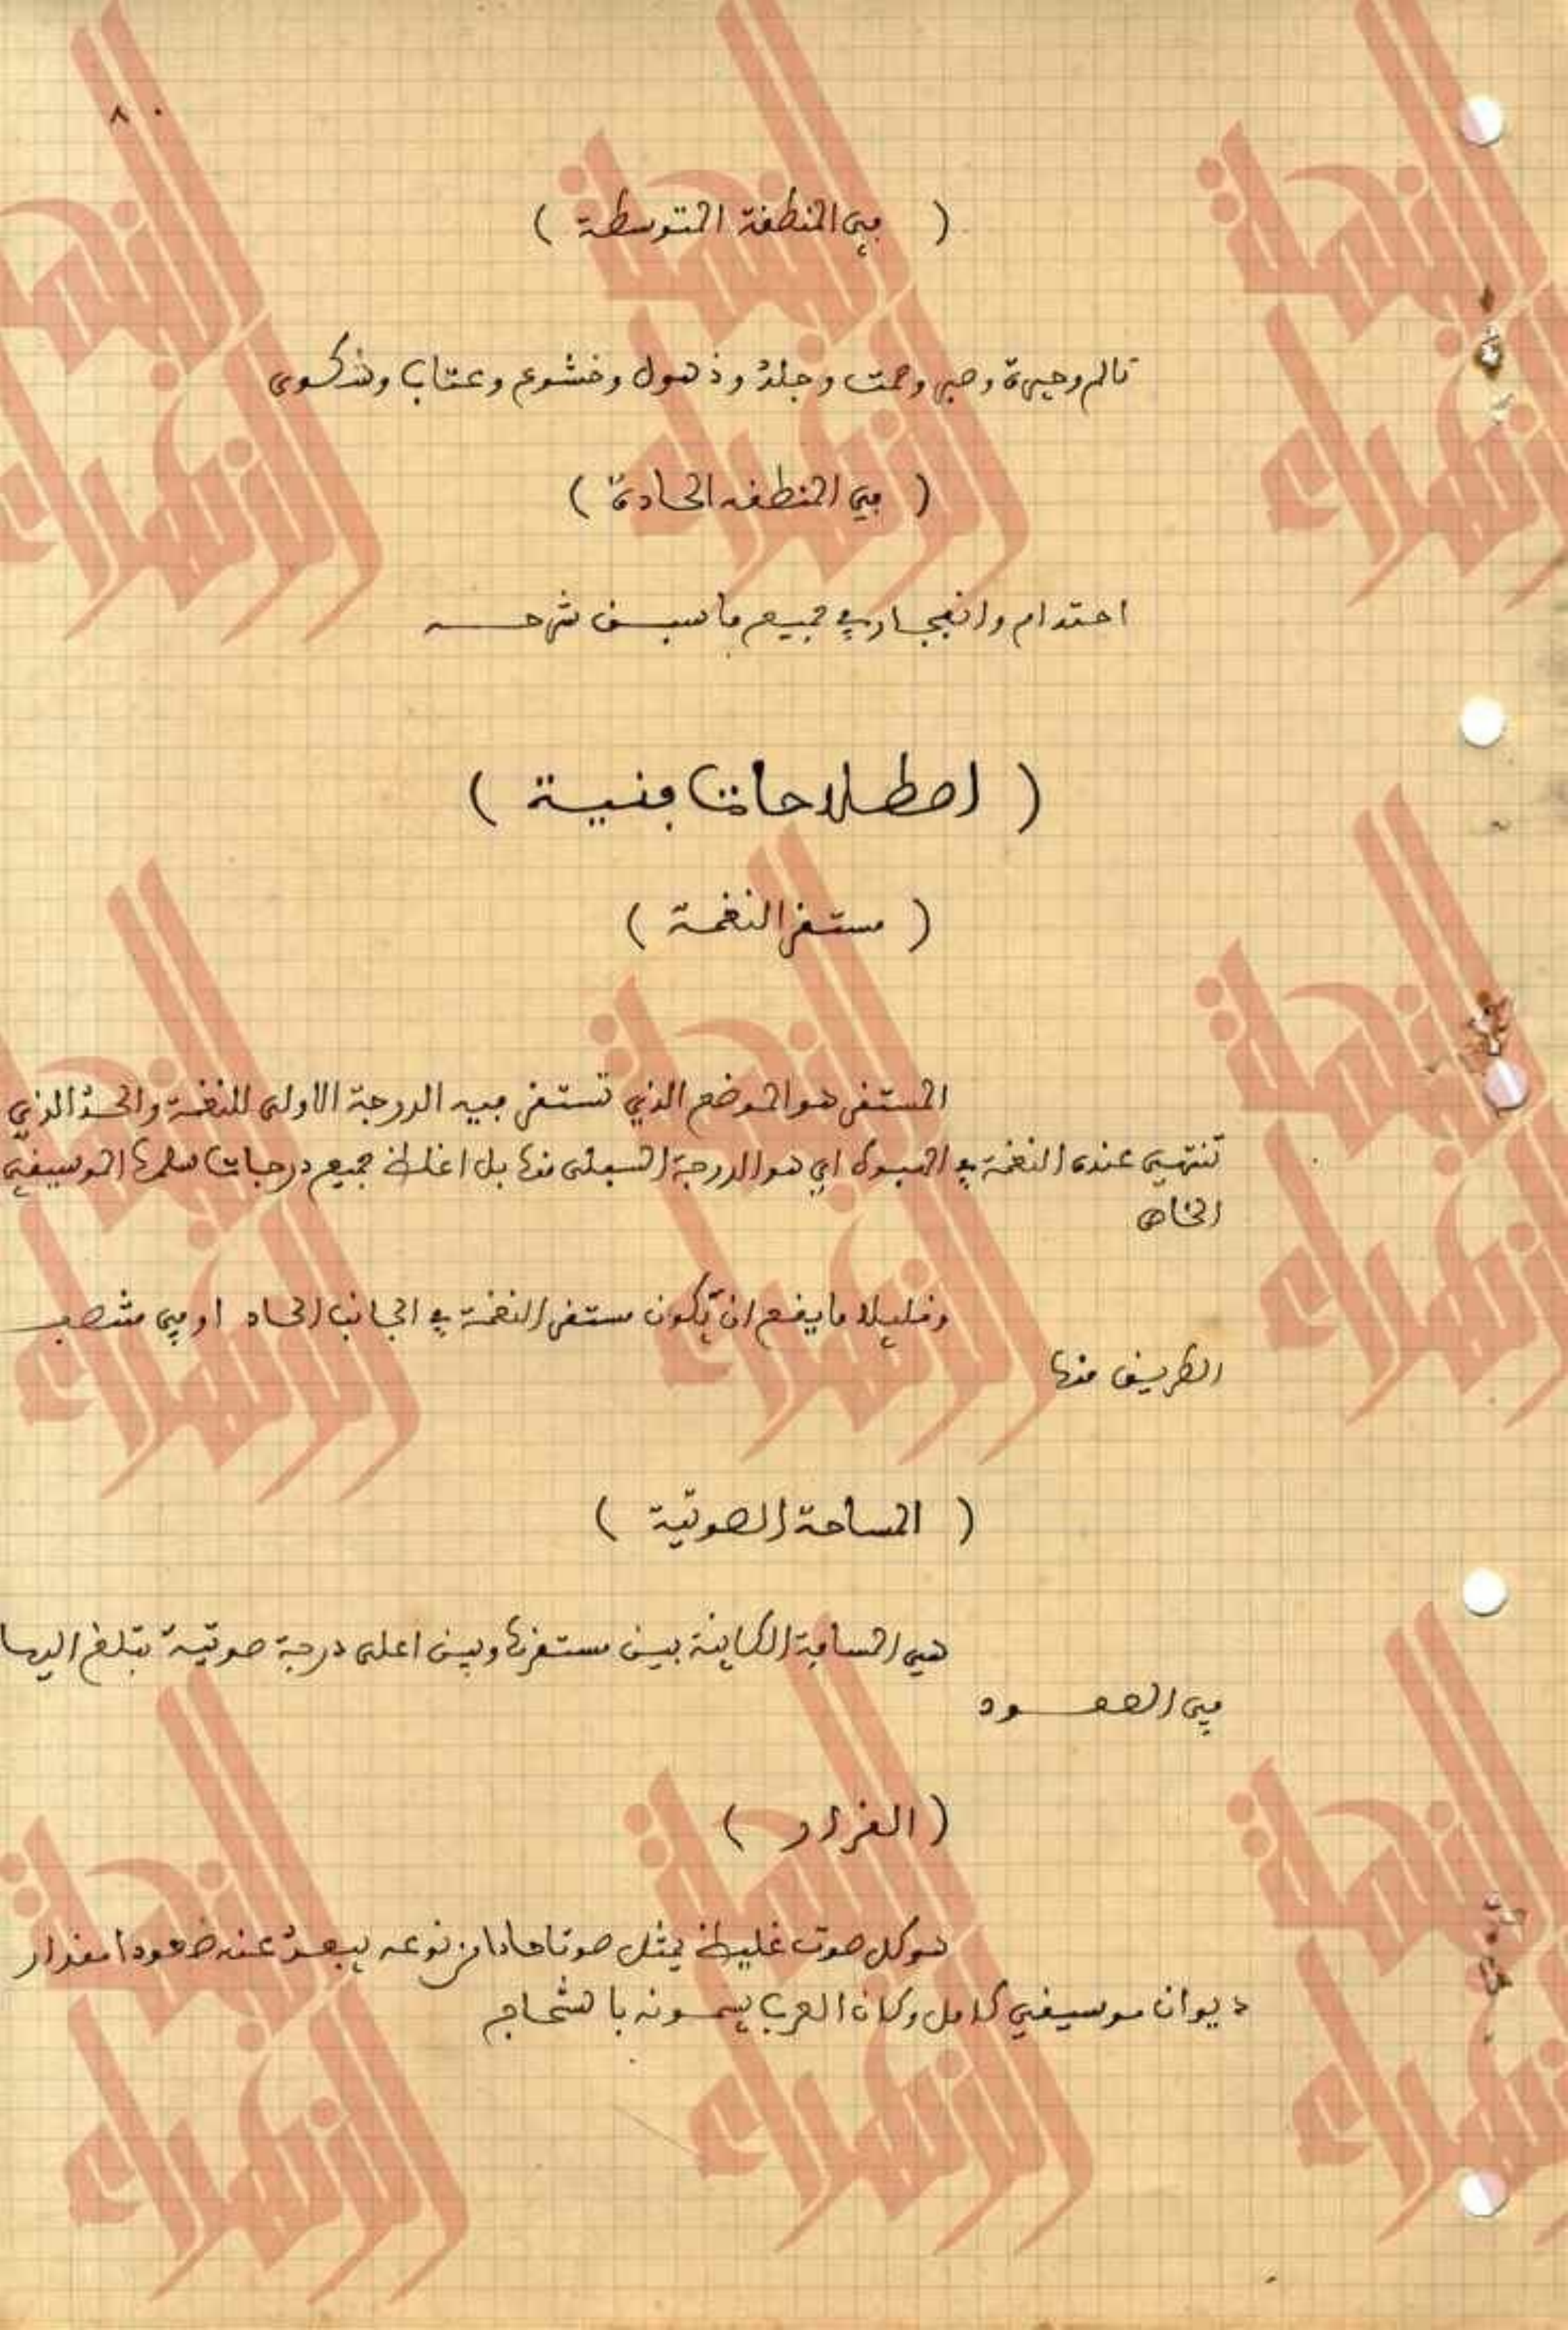 ٨٠
( في المنطقة المتوسطة )
تالم وحيرة وصبر وصمت وجلد وذهول وخشوع وعتاب وشكوى
( في المنطقه الحادة )
احتدام وانفجار في جميع ما سبق شرحه
( اصطلاحات فنية )
( مستقر النغمة )
المستقر هو الموضع الذي تستقر فيه الدرجة الاولى للنغمة والحد الذي
تنتهي عنده النغمة في الهبوط اي هو الدرجة السفلى منها بل اغلظ جميع درجات سلمها الموسيقي
الخاص
وقليلا ما يقع ان يكون مستقر النغمة في الجانب الحاد او في منتصف
الطريق منها
( المساحة الصوتية )
هي المسافة الكاينة بين مستقرها وبين اعلى درجة صوتية تبلغ اليها
في الصعود
( القرار )
هو كل صوت غليظ يمثل صوتا حادا من نوعه يبعد عنه صعودا مقدار
ديوان موسيقي كامل وكان العرب يسمونه بالشحاج
النحلة
الزهراء